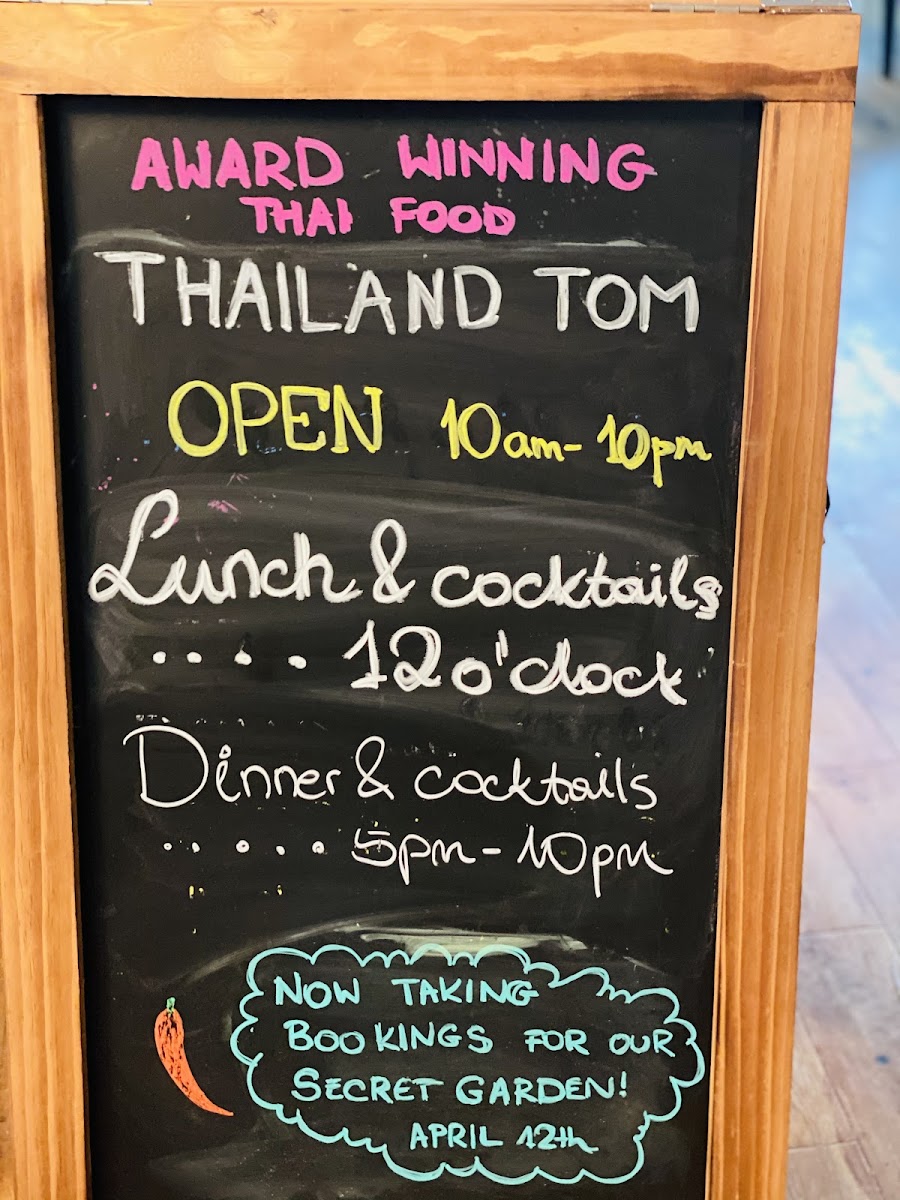 AWARD WINNING
THAI FOOD
THAILAND TOM
OPEN 10am-10pm
Lunch & cocktails
.... 12 o'clock
Dinner & cocktails
..... 5pm-10pm
NOW TAKING
BOOKINGS FOR OUR
SECRET GARDEN!
APRIL 12th